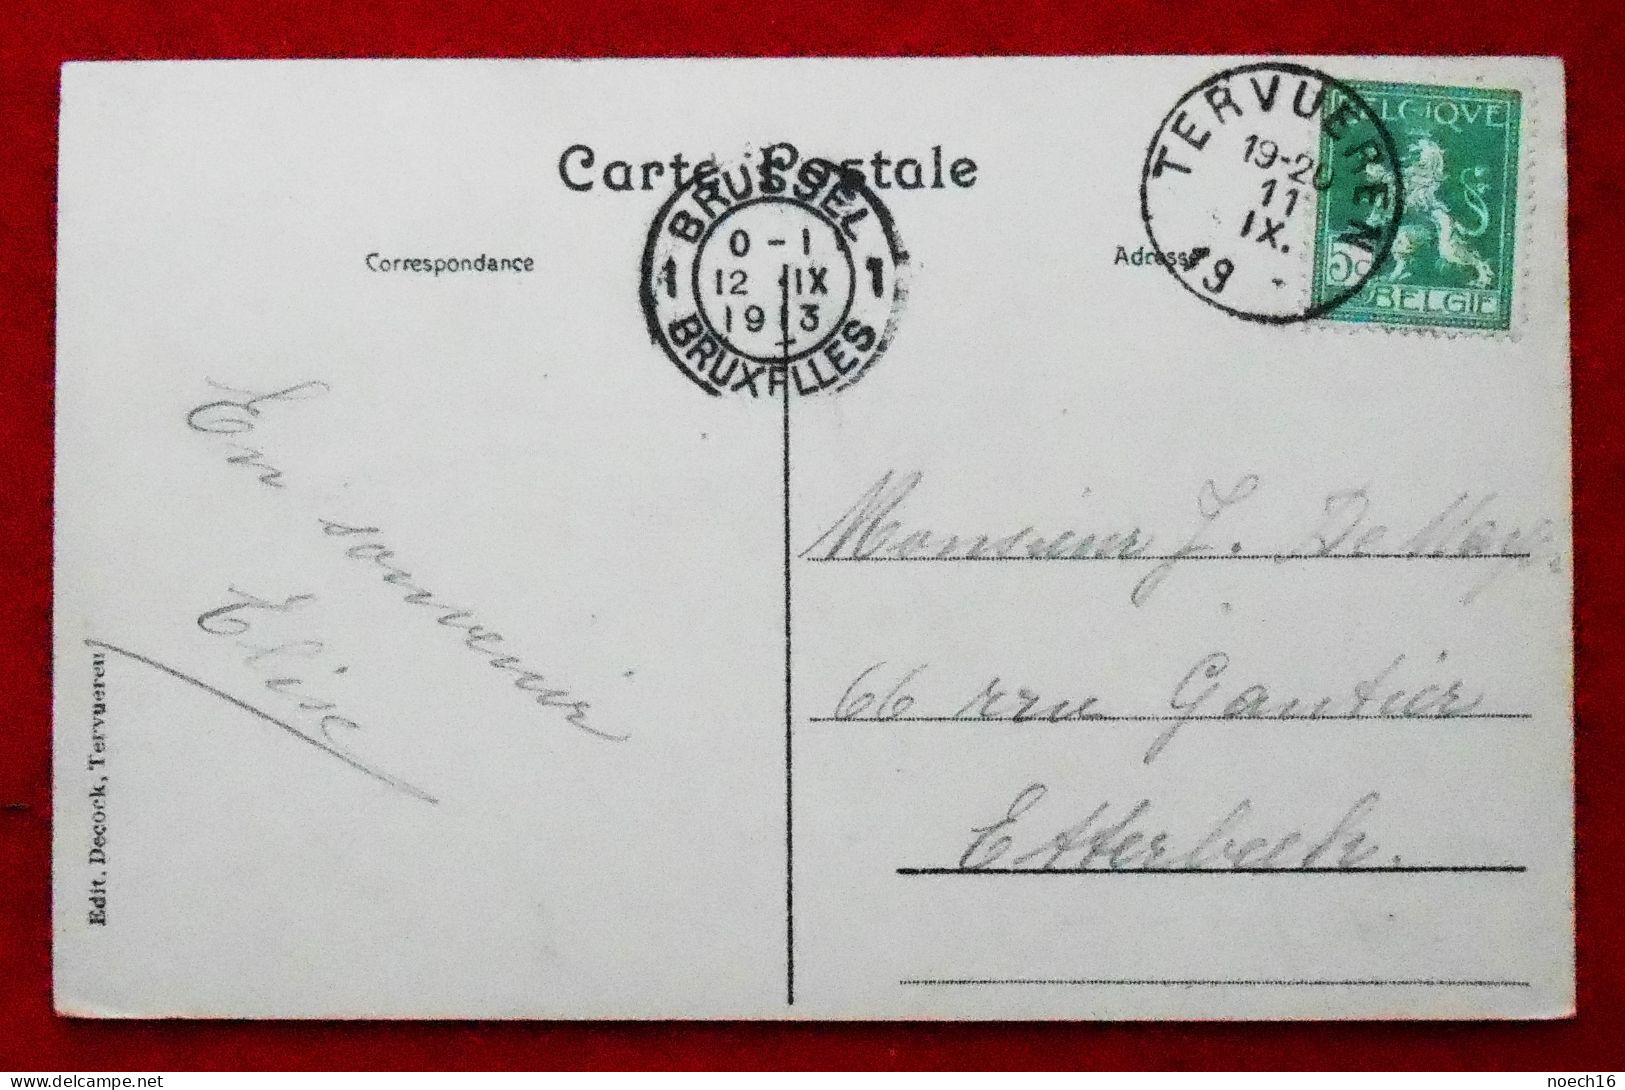 Carte Postale
Correspondance
Adresse
BRUSSEL
0-1
1 12 IX 1
1913
BRUXELLES
TERVUEREN
19-20
11
IX.
19
BELGIQUE
5c
BELGIE
En souvenir
Elise
Monsieur J. De
66 rue Gautier
Etterbeek.
Edit. Decock, Tervueren
noech16